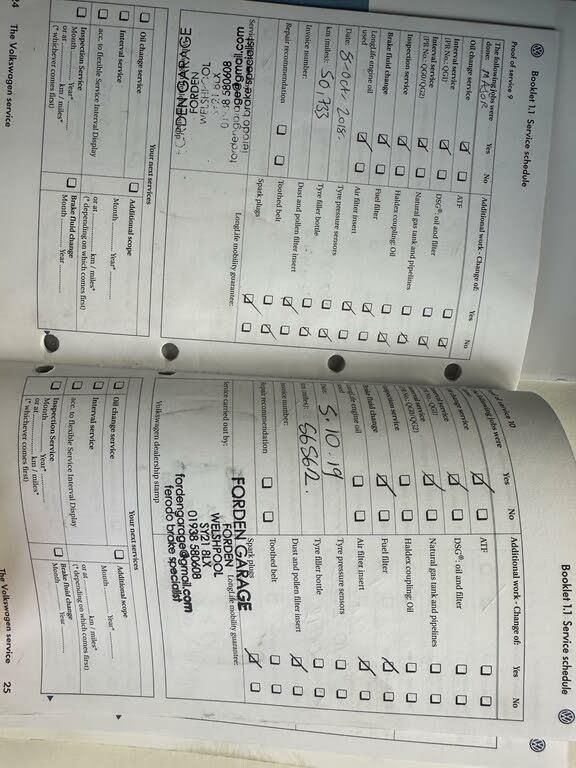 Booklet 1.1 Service schedule
Proof of service 9
The following jobs were done:
MAJOR
Yes
No
Additional work - Change of:
Yes
No
Oil change service
ATF
Interval service (PR No.: QG1)
DSG®: oil and filter
Interval service (PR No.: QG0/QG2)
Natural gas tank and pipelines
Inspection service
Haldex coupling: Oil
Brake fluid change
Fuel filter
LongLife engine oil used
Air filter insert
Date: 8 Oct 2018.
Tyre pressure sensors
km (miles): 50,733
Tyre filler bottle
Invoice number:
Dust and pollen filter insert
Repair recommendation
Toothed belt
Spark plugs
LongLife mobility guarantee:
FORDEN GARAGE
FORDEN
WELSHPOOL
SY21 8LX
01938 580608
Your next services
Oil change service
Interval service
acc. to flexible Service Interval Display
Inspection Service
Month Year*
or at km / miles*
(* whichever comes first)
Additional scope
Month Year*
or at km / miles*
(* depending on which comes first)
Brake fluid change
Month Year
24 The Volkswagen service
Booklet 1.1 Service schedule
of service 10
following jobs were
Yes
No
Additional work - Change of:
Yes
No
change service
ATF
service
QG1)
DSG®: oil and filter
service
No.: QG0/QG2)
Natural gas tank and pipelines
inspection service
Haldex coupling: Oil
fluid change
Fuel filter
engine oil
Air filter insert
5.10.19
Tyre pressure sensors
(miles): 56562.
Tyre filler bottle
number:
Dust and pollen filter insert
repair recommendation
Toothed belt
Spark plugs
LongLife mobility guarantee:
Service carried out by:
FORDEN GARAGE
FORDEN
WELSHPOOL
SY21 8LX
01938 580608
fordengarage@gmail.com
ferodo brake specialist
Volkswagen dealership stamp
Your next services
Oil change service
Interval service
acc. to flexible Service Interval Display
Inspection Service
Month Year*
or at km / miles*
(* whichever comes first)
Additional scope
Month Year*
or at km / miles*
(* depending on which comes first)
Brake fluid change
Month Year
The Volkswagen service 25